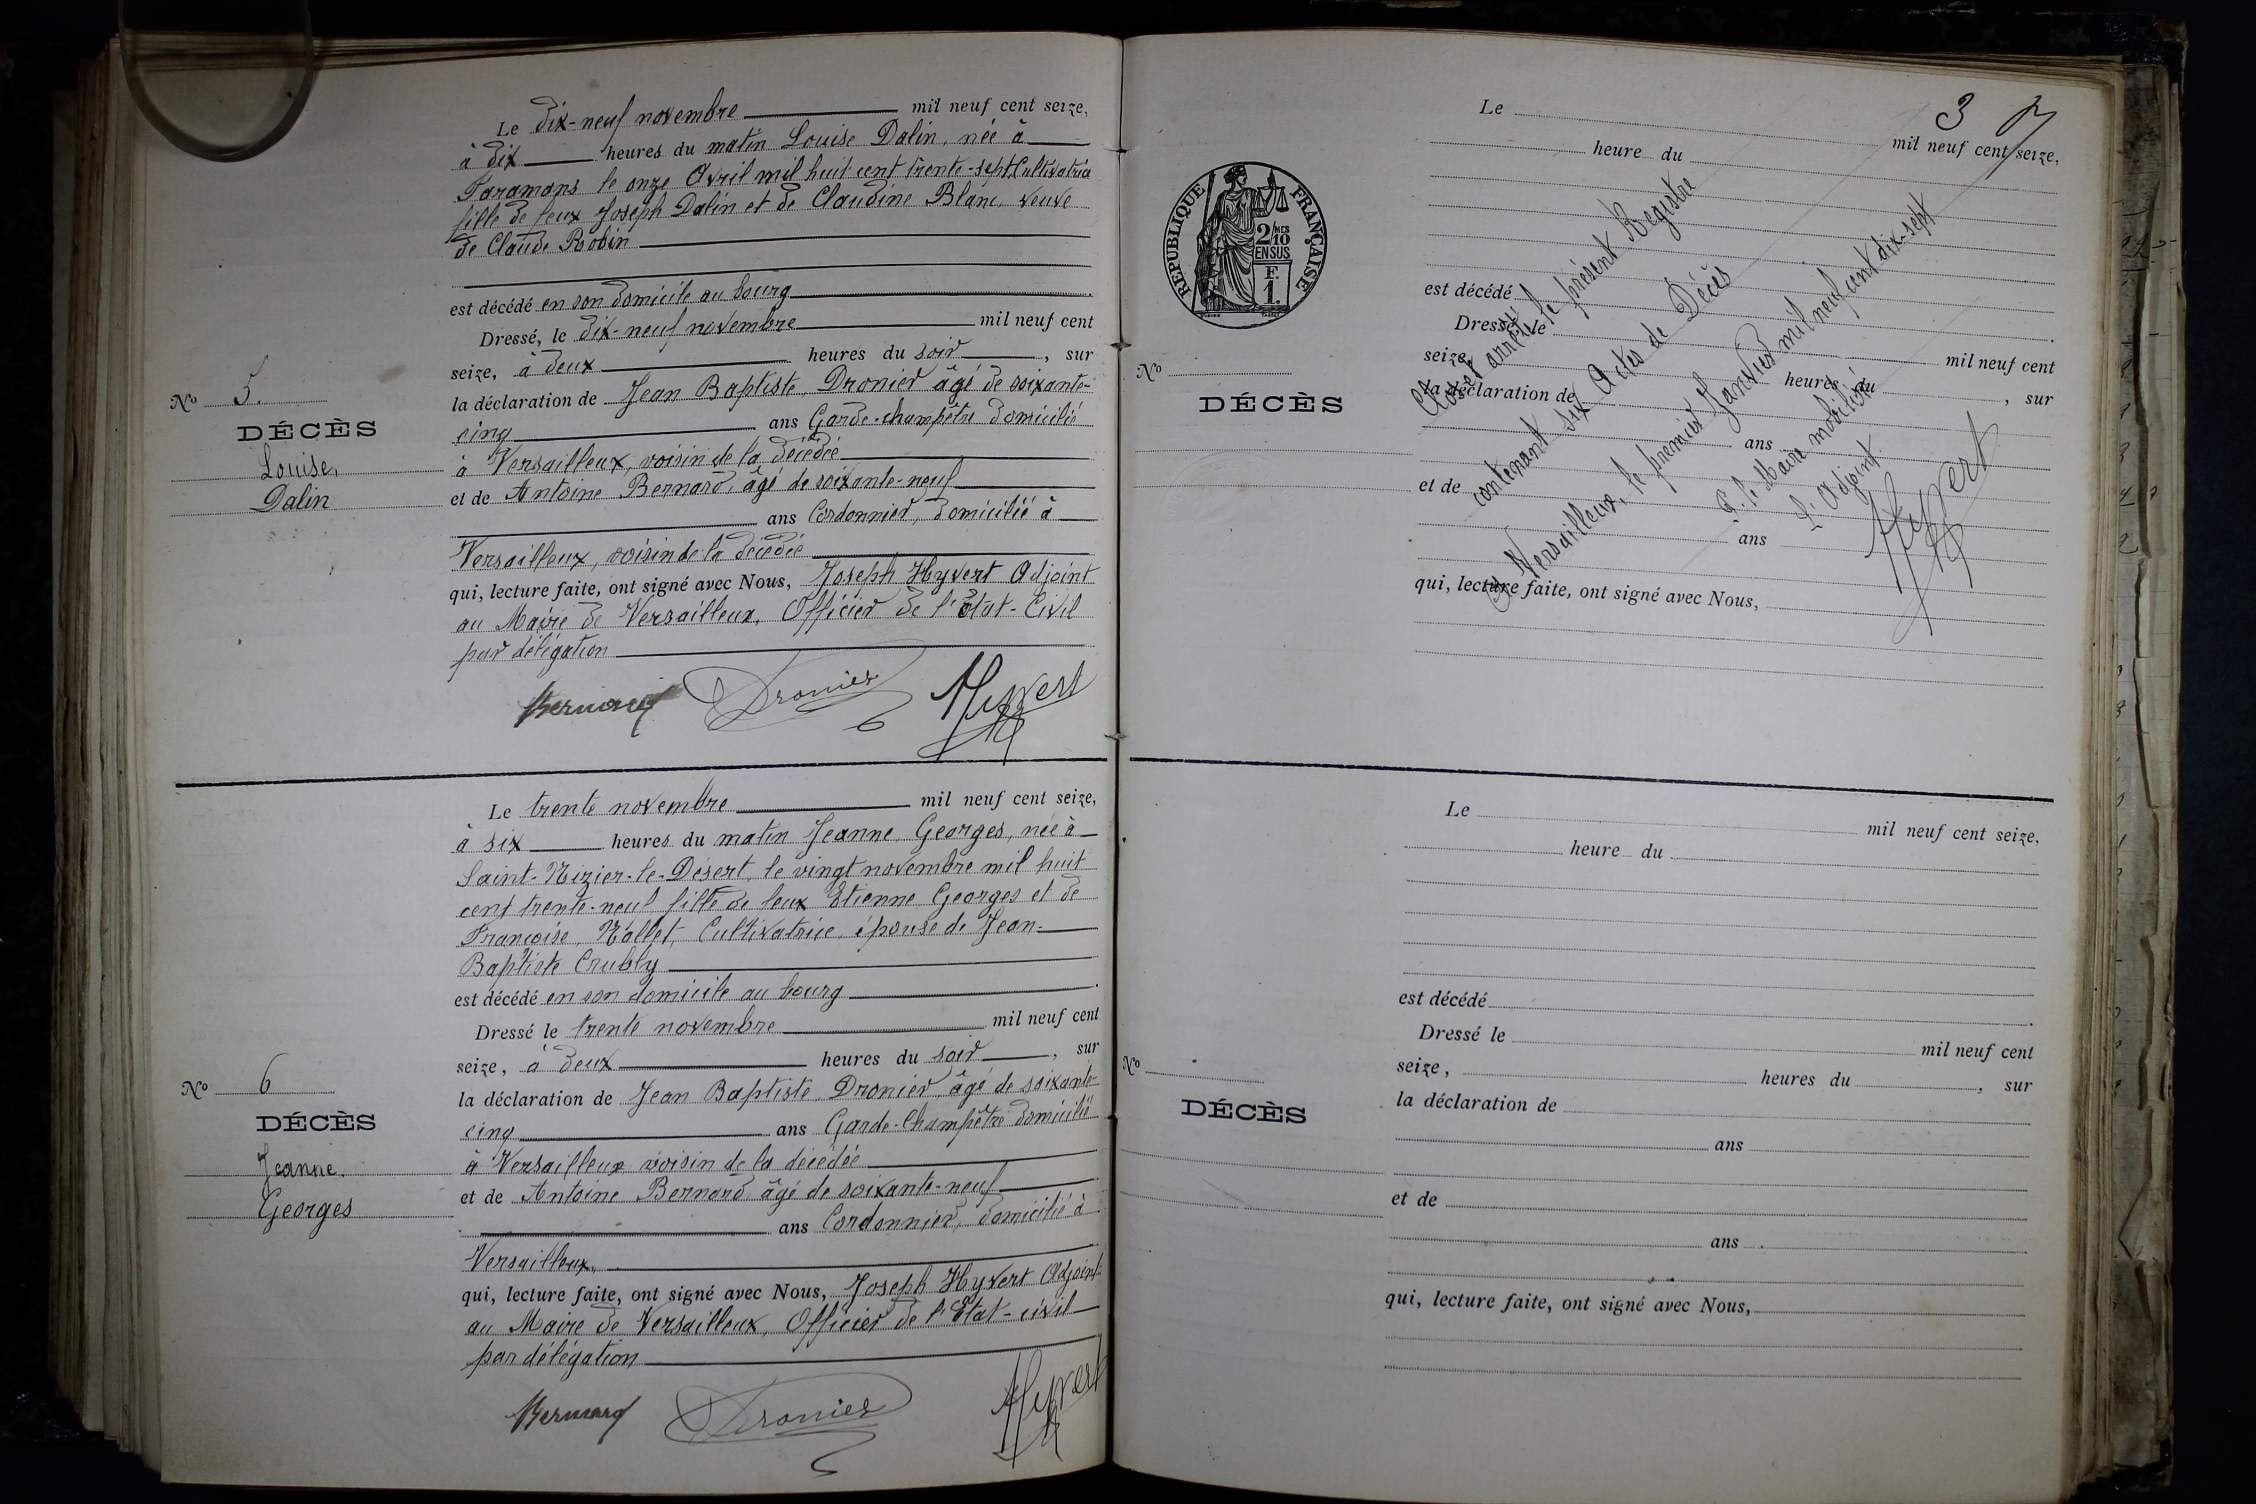 Le dix-neuf novembre mil neuf cent seize,
à dix heures du matin Louise Dalin, née à
Faramans le onze Avril mil huit cent trente-sept, Cultivatrice
fille de feux Joseph Dalin et de Claudine Blanc, veuve
de Claude Robin
est décédé en son domicile au bourg
Dressé, le dix-neuf novembre mil neuf cent
seize, à deux heures du soir, sur
la déclaration de Jean Baptiste Dronier âgé de soixante-
cinq ans Garde-champêtre domicilié
à Versailleux, voisin de la décédée
et de Antoine Bernard, âgé de soixante-neuf
ans Cordonnier, domicilié à
Versailleux, voisin de la décédée
qui, lecture faite, ont signé avec Nous, Joseph Hyvert Adjoint
au Maire de Versailleux, Officier de l'Etat-Civil
par délégation
Bernard Dronier Hyvert
No 5.
DÉCÈS
Louise,
Dalin
Le trente novembre mil neuf cent seize,
à six heures du matin Jeanne Georges, née à
Saint-Nizier-le-Désert, le vingt novembre mil huit
cent trente-neuf fille de feux Etienne Georges et de
Françoise, Nallet, Cultivatrice, épouse de Jean-
Baptiste Crubly
est décédé en son domicile au bourg
Dressé le trente novembre mil neuf cent
seize, à deux heures du soir, sur
la déclaration de Jean Baptiste Dronier, âgé de soixante-
cinq ans Garde-Champêtre domicilié
à Versailleux voisin de la décédée
et de Antoine Bernard âgé de soixante-neuf
ans Cordonnier, domicilié à
Versailleux,
qui, lecture faite, ont signé avec Nous, Joseph Hyvert Adjoint
au Maire de Versailleux, Officier de l'Etat-civil
par délégation
Bernard Dronier Hyvert
No 6
DÉCÈS
Jeanne.
Georges
3
RÉPUBLIQUE FRANÇAISE
2/10 MES
EN SUS
F.
1.
No
DÉCÈS
Le mil neuf cent seize,
heure du
est décédé
Dressé, le mil neuf cent
seize, heures du, sur
la déclaration de
ans
et de
ans
qui, lecture faite, ont signé avec Nous,
Clos et arrêté le présent Registre
contenant six Actes de Décès
à Versailleux, le premier Janvier mil neuf cent dix-sept
P. le Maire mobilisé
L'Adjoint
Hyvert
Le mil neuf cent seize,
heure du
est décédé
Dressé le mil neuf cent
seize, heures du, sur
la déclaration de
ans
et de
ans
qui, lecture faite, ont signé avec Nous,
No
DÉCÈS